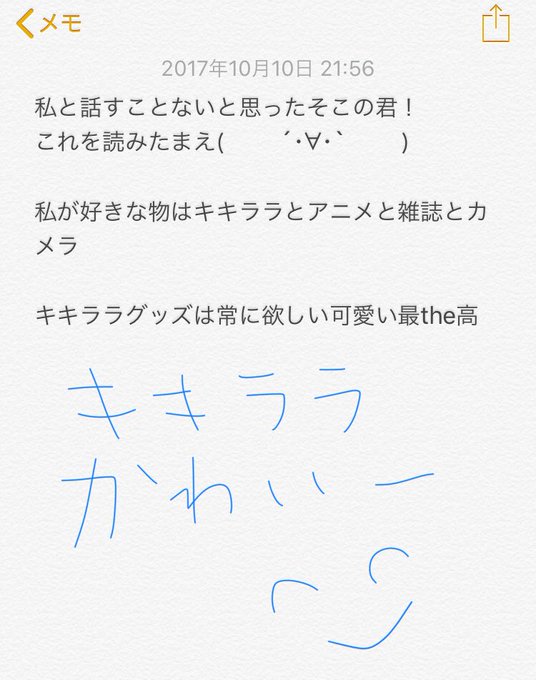 メモ
2017年10月10日 21:56
私と話すことないと思ったそこの君！
これを読みたまえ(　　´･∀･`　　)
私が好きな物はキキララとアニメと雑誌とカ
メラ
キキララグッズは常に欲しい可愛い最the高
キキララ
かわいー